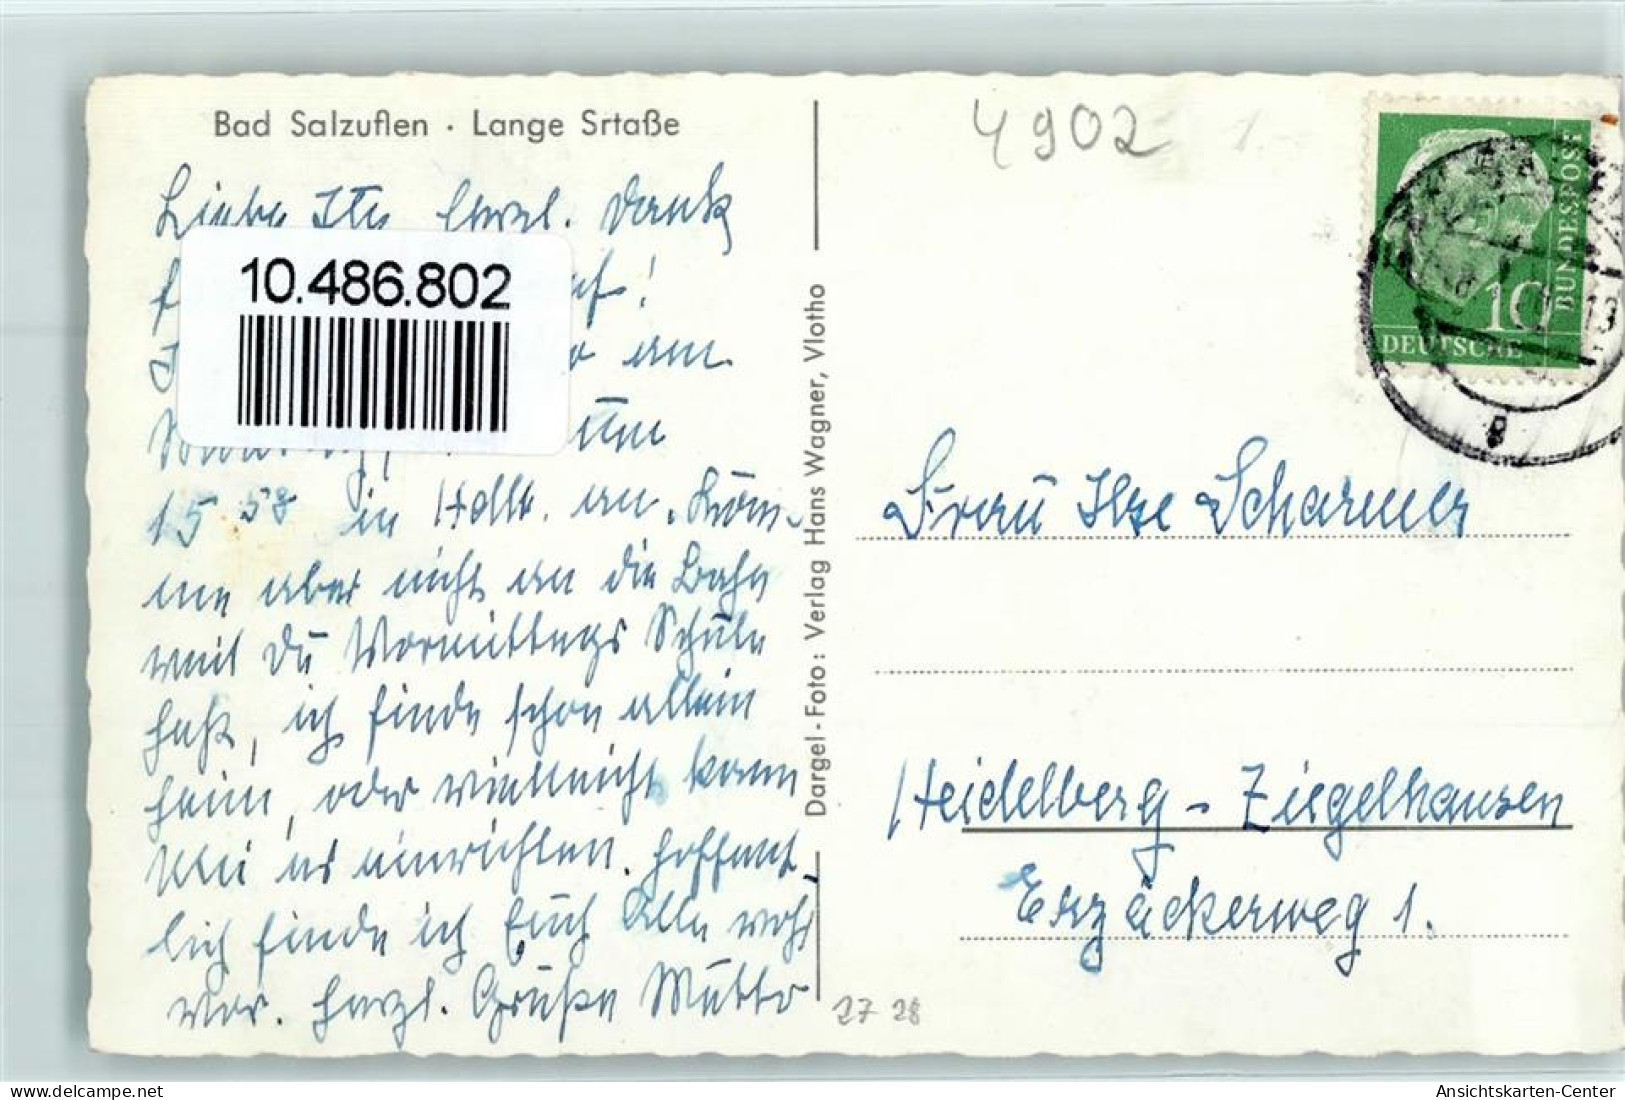 Bad Salzuflen · Lange Srtaße
4902
Liebe Ilse herzl. Dank
10.486.802
am
15 58 in Hdlb. an. Kom-
me aber nicht an die Bahn
weil Du Vormittags Schule
hast, ich finde schon allein
heim, oder vielleicht kann
es einrichten. Hoffent-
lich finde ich Euch Alle wohl
vor. Herzl. Grüße Mutter
Dargel-Foto: Verlag Hans Wagner, Vlotho
10
DEUTSCHE
BUNDESPOST
Frau Ilse Scharmer
Heidelberg - Ziegelhausen
Erzäckerweg 1.
27 28
www.delcampe.net
Ansichtskarten-Center